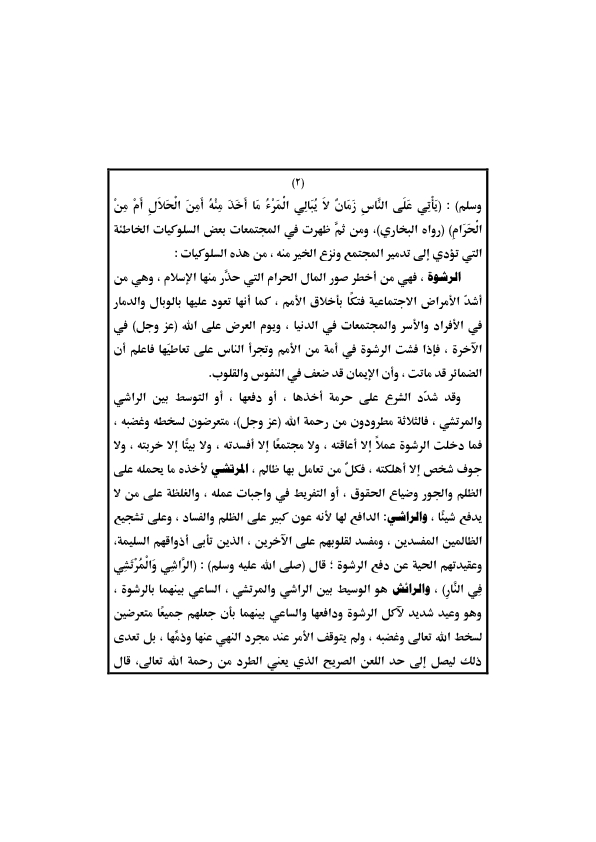 (٢)
وسلم) : (يَأْتِي عَلَى النَّاسِ زَمَانٌ لاَ يُبَالِي الْمَرْءُ مَا أَخَذَ مِنْهُ أَمِنَ الْحَلاَلِ أَمْ مِنْ
الْحَرَامِ) (رواه البخاري)، ومن ثمَّ ظهرت في المجتمعات بعض السلوكيات الخاطئة
التي تؤدي إلى تدمير المجتمع ونزع الخير منه ، من هذه السلوكيات :
الرشوة ، فهي من أخطر صور المال الحرام التي حذَّر منها الإسلام ، وهي من
أشدّ الأمراض الاجتماعية فتكًا بأخلاق الأمم ، كما أنها تعود عليها بالوبال والدمار
في الأفراد والأسر والمجتمعات في الدنيا ، ويوم العرض على الله (عز وجل) في
الآخرة ، فإذا فشت الرشوة في أمة من الأمم وتجرأ الناس على تعاطيها فاعلم أن
الضمائر قد ماتت ، وأن الإيمان قد ضعف في النفوس والقلوب.
وقد شدّد الشرع على حرمة أخذها ، أو دفعها ، أو التوسط بين الراشي
والمرتشي ، فالثلاثة مطرودون من رحمة الله (عز وجل)، متعرضون لسخطه وغضبه ،
فما دخلت الرشوة عملاً إلا أعاقته ، ولا مجتمعًا إلا أفسدته ، ولا بيتًا إلا خربته ، ولا
جوف شخص إلا أهلكته ، فكلٌ من تعامل بها ظالم ، المرتشي لأخذه ما يحمله على
الظلم والجور وضياع الحقوق ، أو التفريط في واجبات عمله ، والغلظة على من لا
يدفع شيئًا ، والراشي: الدافع لها لأنه عون كبير على الظلم والفساد ، وعلى تشجيع
الظالمين المفسدين ، ومفسد لقلوبهم على الآخرين ، الذين تأبى أذواقهم السليمة،
وعقيدتهم الحية عن دفع الرشوة ؛ قال (صلى الله عليه وسلم) : (الرَّاشِي وَالْمُرْتَشِي
فِي النَّارِ) ، والرائش هو الوسيط بين الراشي والمرتشي ، الساعي بينهما بالرشوة ،
وهو وعيد شديد لآكل الرشوة ودافعها والساعي بينهما بأن جعلهم جميعًا متعرضين
لسخط الله تعالى وغضبه ، ولم يتوقف الأمر عند مجرد النهي عنها وذمِّها ، بل تعدى
ذلك ليصل إلى حد اللعن الصريح الذي يعني الطرد من رحمة الله تعالى، قال